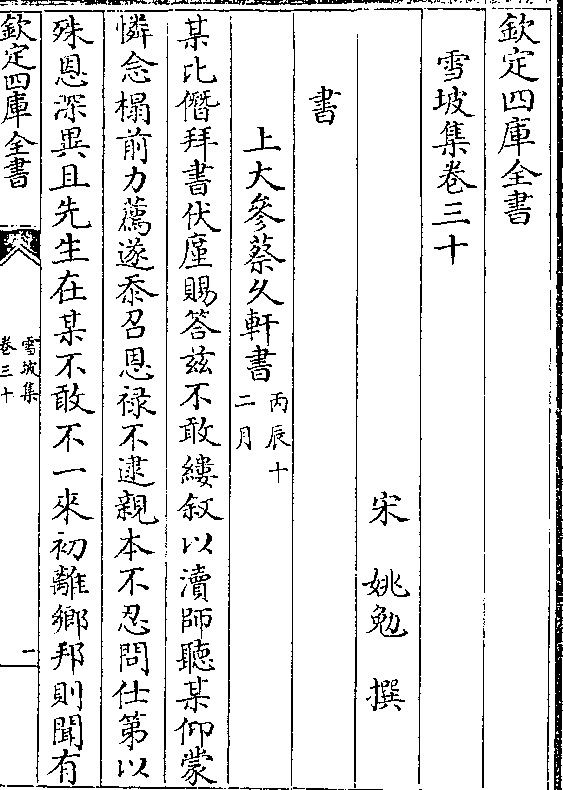 欽定四庫全書
雪坡集卷三十
宋 姚勉 撰
書
上大參蔡久軒書丙辰十二月
某比僭拜書伏廑賜答茲不敢縷叙以瀆師聽某仰蒙
憐念榻前力薦遂忝召恩禄不逮親本不忍問仕第以
殊恩深異且先生在某不敢不一來初離鄉邦則聞有
欽定四庫全書
雪坡集
卷三十
一